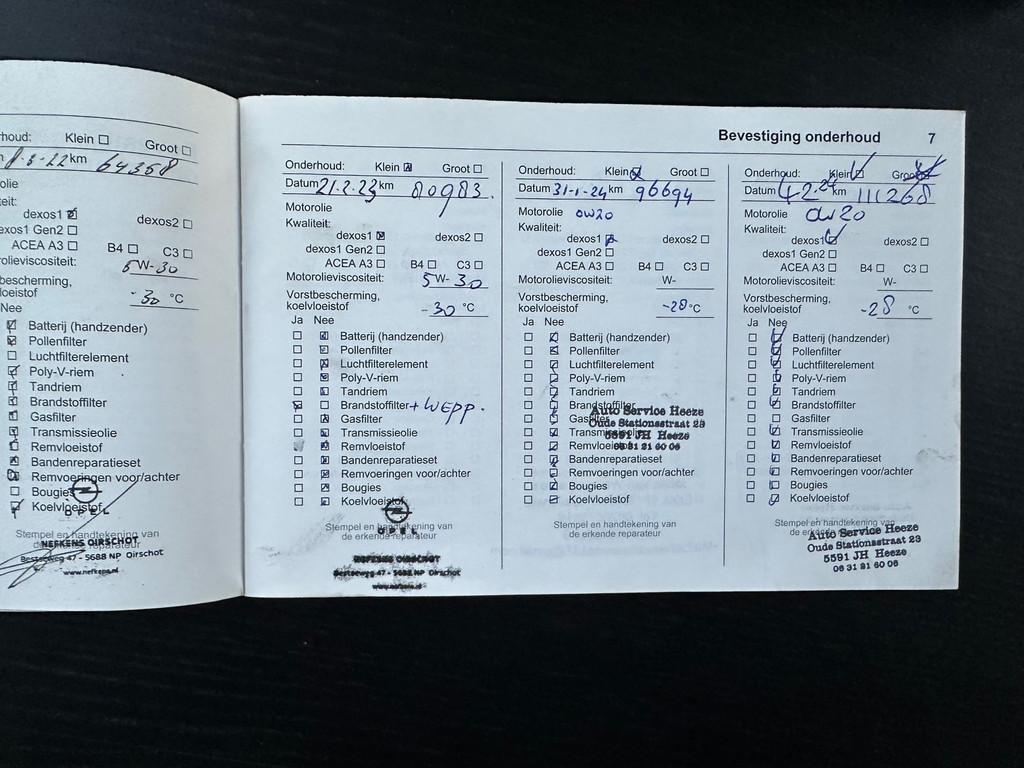 Bevestiging onderhoud 7
houd: Klein Groot
km 64358
olie
eit:
dexos1 dexos2
exos1 Gen2
ACEA A3 B4 C3
rolieviscositeit:
5W-30
bescherming,
loeistof -30 °C
Nee
Batterij (handzender)
Pollenfilter
Luchtfilterelement
Poly-V-riem
Tandriem
Brandstoffilter
Gasfilter
Transmissieolie
Remvloeistof
Bandenreparatieset
Remvoeringen voor/achter
Bougies
Koelvloeistof
OPEL
Stempel en handtekening van
de erkende reparateur
NEFKENS OIRSCHOT
Bestseweg 47 - 5688 NP Oirschot
www.nefkens.nl
Onderhoud: Klein Groot
Datum 21.2.23 km 80983.
Motorolie
Kwaliteit:
dexos1 dexos2
dexos1 Gen2
ACEA A3 B4 C3
Motorolieviscositeit: 5W-30
Vorstbescherming,
koelvloeistof -30 °C
Ja Nee
Batterij (handzender)
Pollenfilter
Luchtfilterelement
Poly-V-riem
Tandriem
Brandstoffilter + WEPP.
Gasfilter
Transmissieolie
Remvloeistof
Bandenreparatieset
Remvoeringen voor/achter
Bougies
Koelvloeistof
OPEL
Stempel en handtekening van
de erkende reparateur
NEFKENS OIRSCHOT
Bestseweg 47 - 5688 NP Oirschot
www.nefkens.nl
Onderhoud: Klein Groot
Datum 31-1-24 km 96694
Motorolie 0W20
Kwaliteit:
dexos1 dexos2
dexos1 Gen2
ACEA A3 B4 C3
Motorolieviscositeit: W-
Vorstbescherming,
koelvloeistof -28 °C
Ja Nee
Batterij (handzender)
Pollenfilter
Luchtfilterelement
Poly-V-riem
Tandriem
Brandstoffilter
Gasfilter
Transmissieolie
Remvloeistof
Bandenreparatieset
Remvoeringen voor/achter
Bougies
Koelvloeistof
Auto Service Heeze
Oude Stationsstraat 23
5591 JH Heeze
06 31 21 60 06
Stempel en handtekening van
de erkende reparateur
Onderhoud: Klein Groot
Datum km 111268
Motorolie 0W20
Kwaliteit:
dexos1 dexos2
dexos1 Gen2
ACEA A3 B4 C3
Motorolieviscositeit: W-
Vorstbescherming,
koelvloeistof -28 °C
Ja Nee
Batterij (handzender)
Pollenfilter
Luchtfilterelement
Poly-V-riem
Tandriem
Brandstoffilter
Gasfilter
Transmissieolie
Remvloeistof
Bandenreparatieset
Remvoeringen voor/achter
Bougies
Koelvloeistof
Stempel en handtekening van
de erkende reparateur
Auto Service Heeze
Oude Stationsstraat 23
5591 JH Heeze
06 31 21 60 06